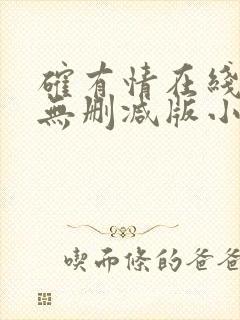 確有情在綫
無删减版小
喫而條的爸爸